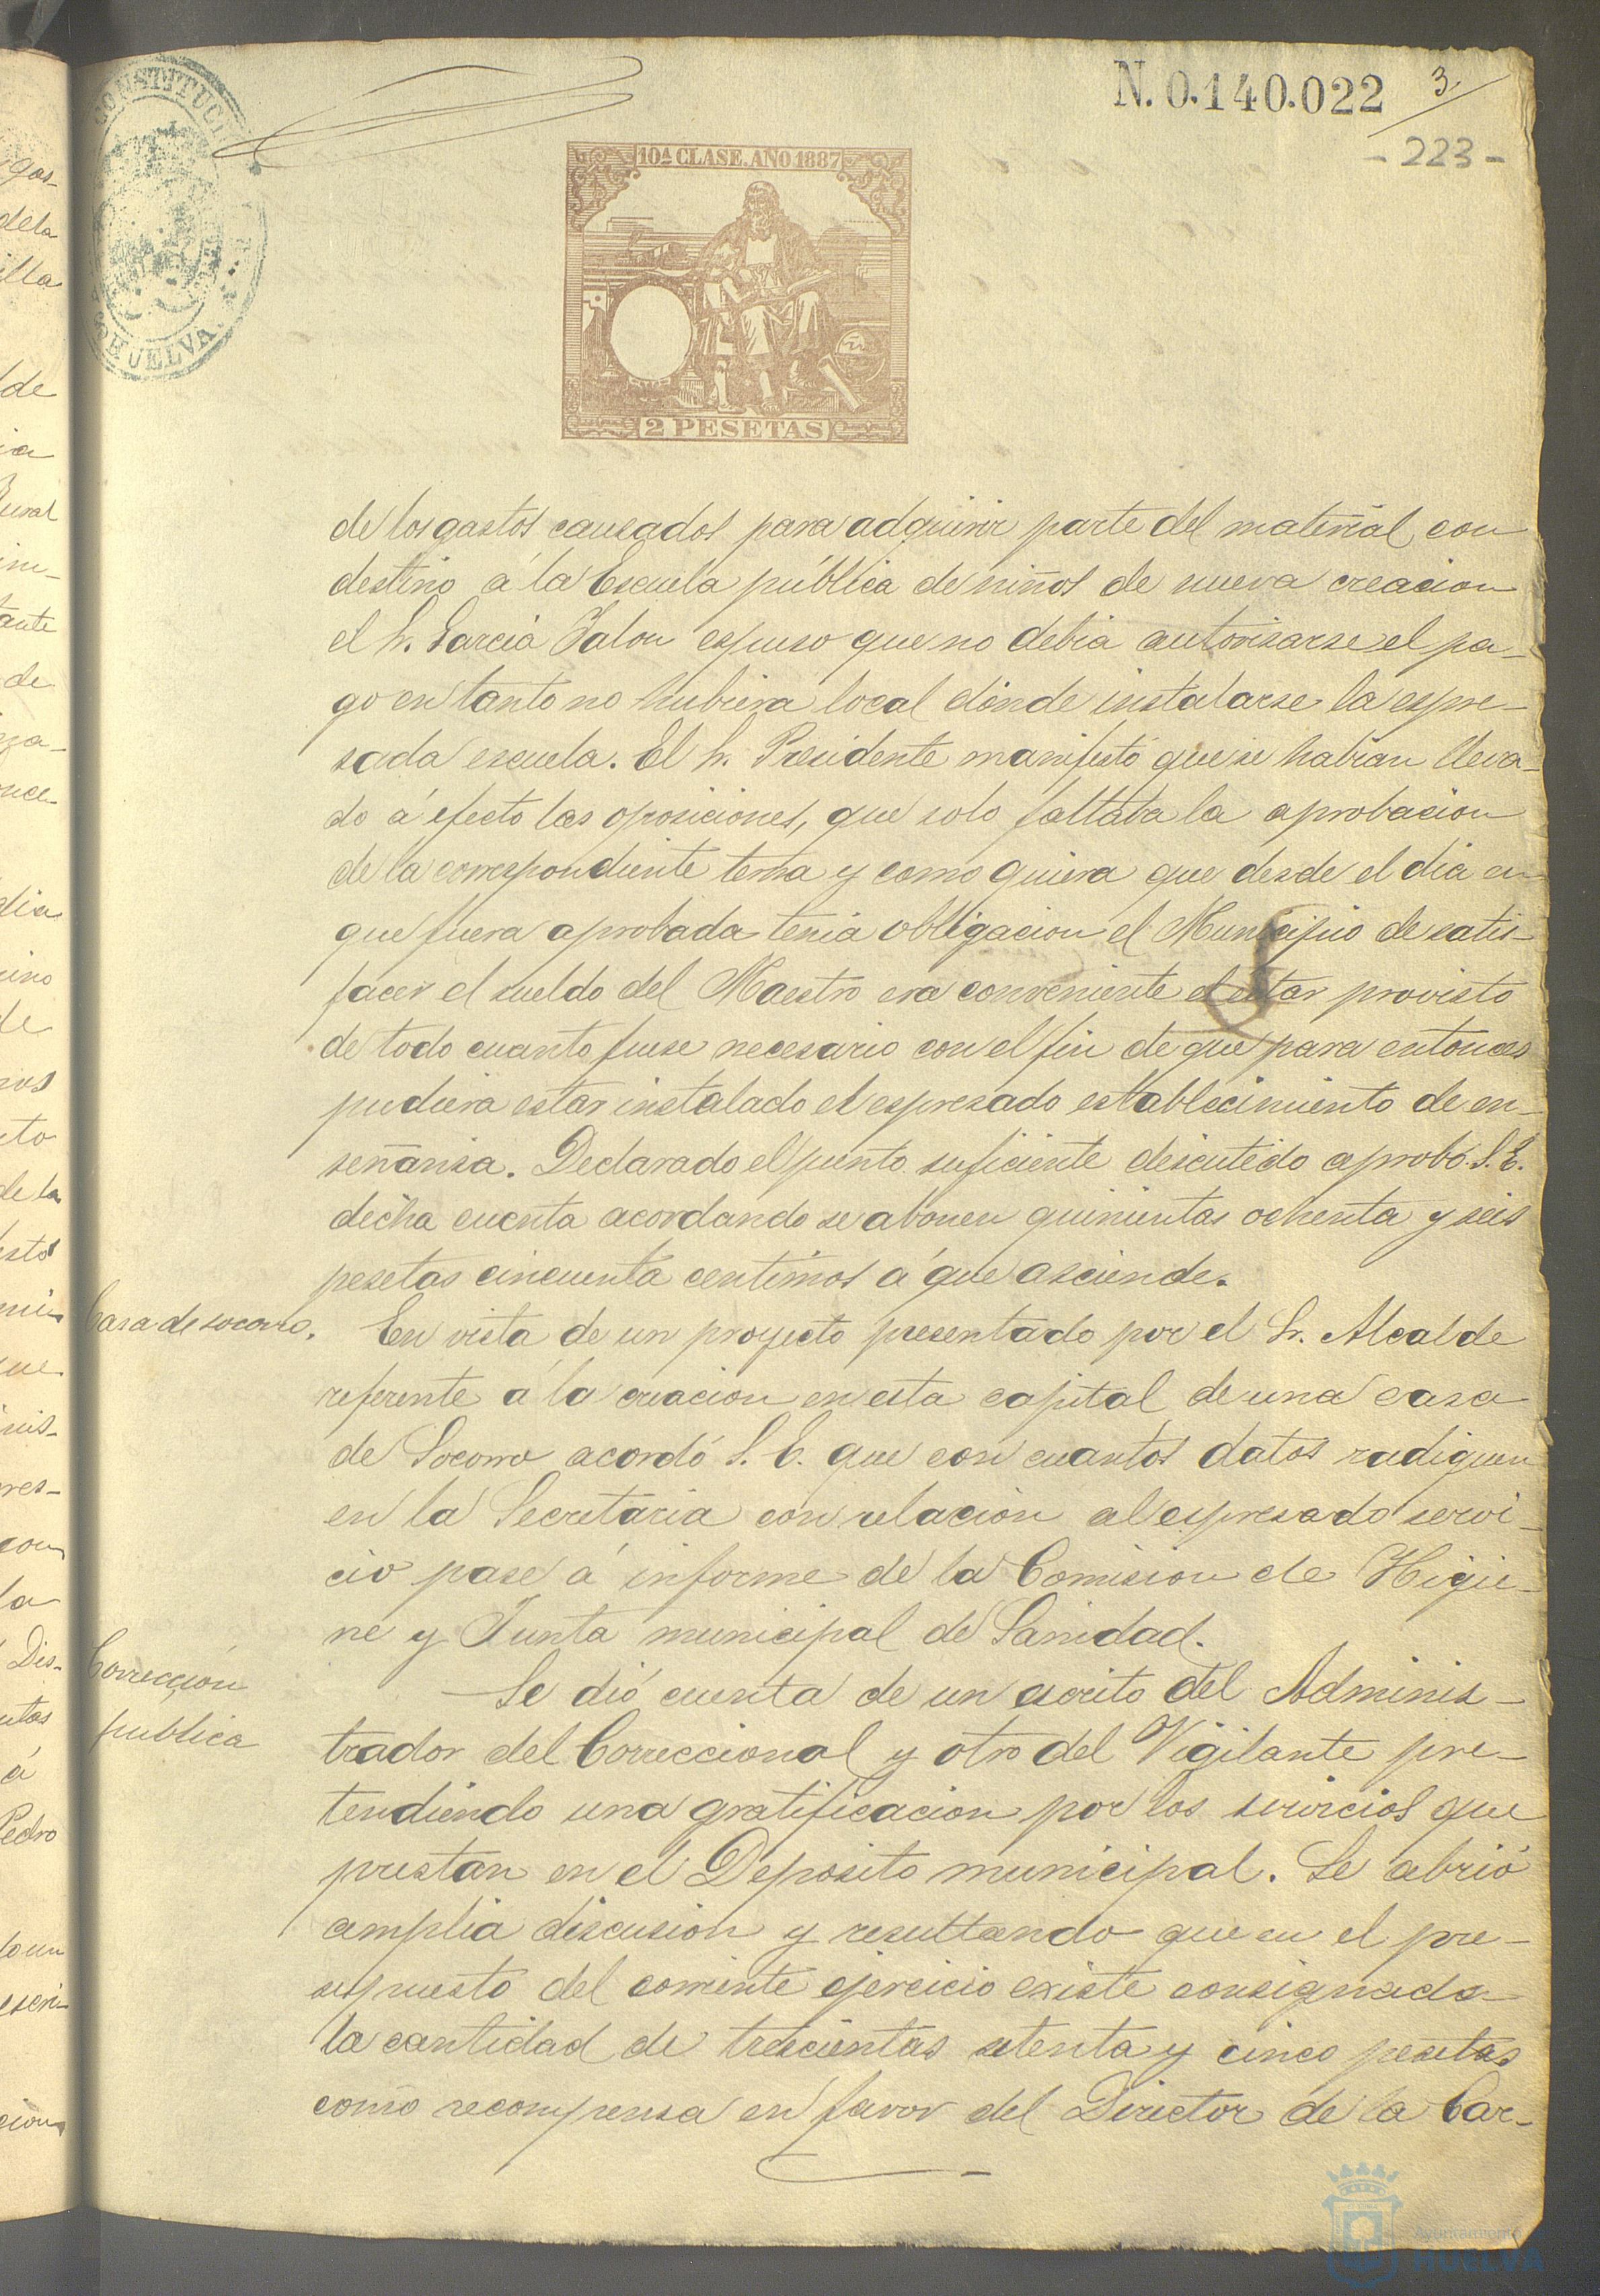 N. 0.140.022
3
- 223 -
CONSTITUC
HUELVA
10ª CLASE. AÑO 1887
2 PESETAS
de los gastos causados para adquirir parte del material con
destino á la Escuela pública de niños de nueva creacion
el Sr. Garcia Jalon espuso que no debia autorisarse el pa-
go en tanto no hubiera local donde instalarse la espre-
sada escuela. El Sr. Presidente manifestó que se habian lleva-
do á efecto las oposiciones, que solo faltaba la aprobacion
de la correspondiente terna y como quiera que desde el dia en
que fuera aprobada tenia obligacion el Municipio de satis-
facer el sueldo del Maestro era conveniente el estar provisto
de todo cuanto fuese necesario con el fin de que para entonces
pudiera estar instalado el espresado establecimiento de en-
señansa. Declarado el punto suficiente discutido aprobó S. E.
dicha cuenta acordando se abonen quinientas ochenta y seis
pesetas cincuenta centimos á que asciende.
Casa de socorro.
En vista de un proyecto presentado por el Sr. Alcalde
referente á la creacion en esta capital de una casa
de Socorro acordó S. E. que con cuantos datos radiquen
en la Secretaria con relacion al espresado servi-
cio pase á informe de la Comision de Higie-
ne y Junta municipal de Sanidad.
Corrección
publica
Se dió cuenta de un escrito del Adminis-
trador del Correccional y otro del Vigilante pre-
tendiendo una gratificacion por los servicios que
prestan en el Deposito municipal. Se abrió
amplia discusion y resultando que en el pre-
supuesto del corriente ejercicio existe consignada
la cantidad de trescientas setenta y cinco pesetas
como recompensa en favor del Director de la Car-
Ayuntamiento
HUELVA